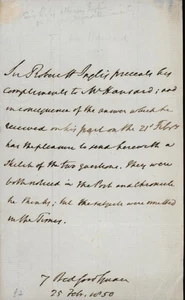 Sir Robert H Inglis presents his
compliments to Mr Hansard; and
in consequence of the answer which he
received on his part on the 21st Feb.
has the pleasure to send herewith a
sketch of the two questions. They were
both noticed in the Post and Chronicle
he thinks; but the subjects were omitted
in the Times.
7 Bedford Square
25 Feb. 1850